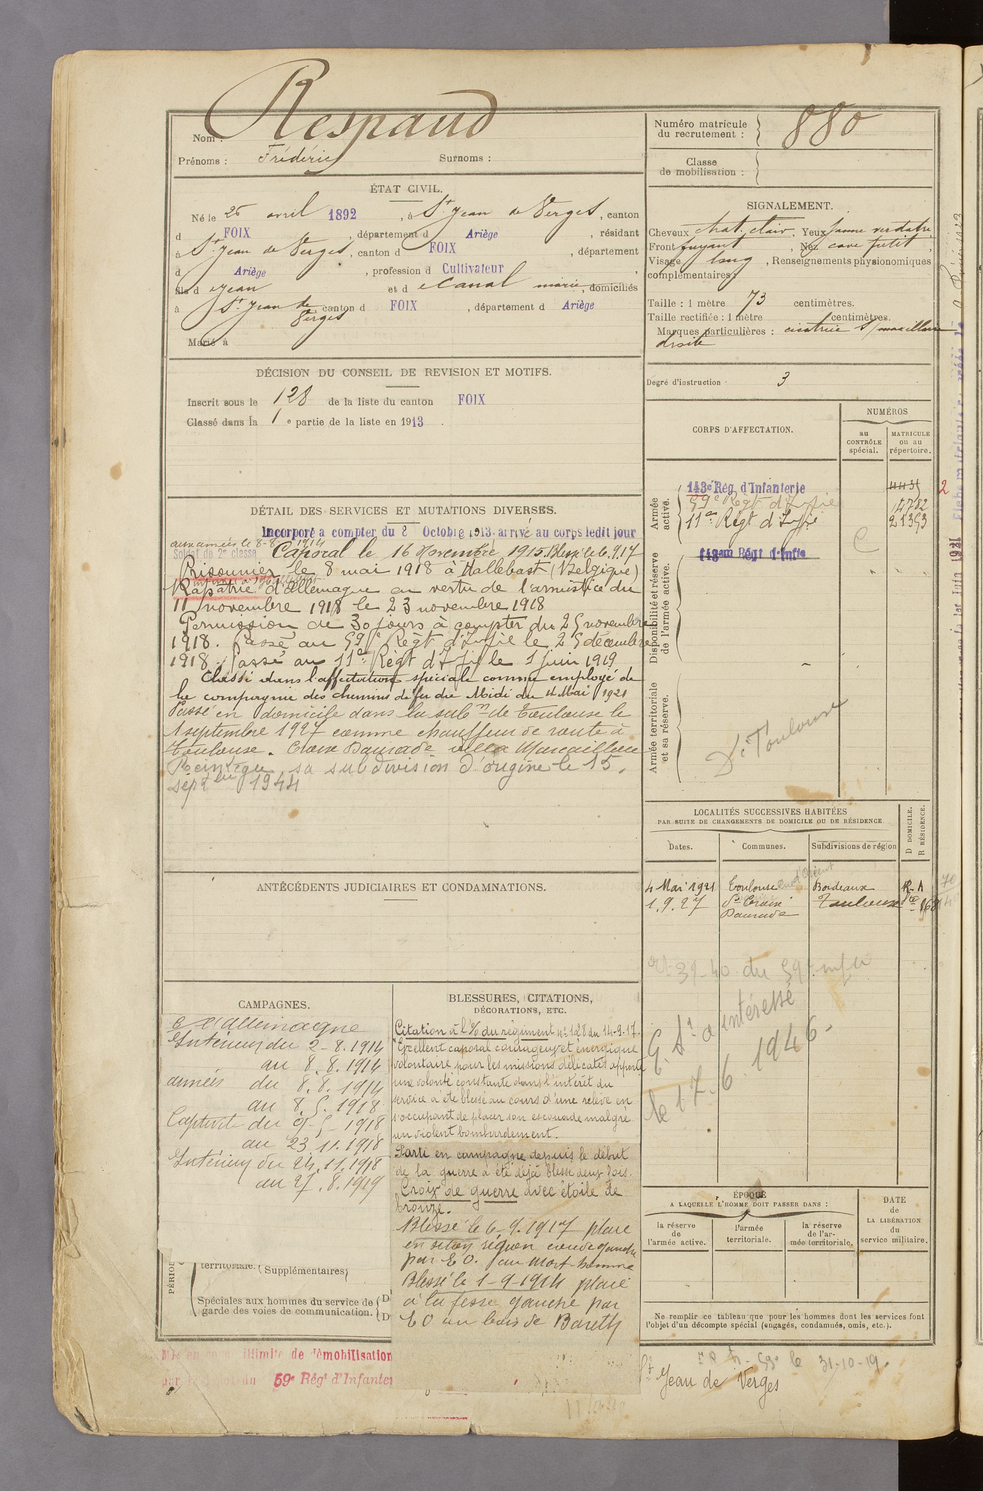 Nom : Respaud
Prénoms : Frédéric Surnoms :
Numéro matricule du recrutement : 880
Classe de mobilisation :
ÉTAT CIVIL.
Né le 26 avril 1892, à St Jean de Verges, canton
d FOIX, département d Ariège, résidant
à St Jean de Verges, canton d FOIX, département
d Ariège, profession d Cultivateur
fils d Jean et d Canal marie, domiciliés
à St Jean de Verges canton d FOIX, département d Ariège
Marié à
SIGNALEMENT.
Cheveux chat. clair. Yeux jaune verdatre
Front fuyant, Nez cave petit
Visage long, Renseignements physionomiques
complémentaires
Taille : 1 mètre 73 centimètres.
Taille rectifiée : 1 mètre centimètres.
Marques particulières : cicatrice s/ maxillaire
droite
Degré d'instruction 3
DÉCISION DU CONSEIL DE REVISION ET MOTIFS.
Inscrit sous le 128 de la liste du canton FOIX
Classé dans la 1e partie de la liste en 1913.
CORPS D'AFFECTATION.
NUMÉROS
au CONTRÔLE spécial.
MATRICULE ou au répertoire.
Armée active.
143e Rég. d'Infanterie
59e Régt d'Infie
11e Régt d'Infie
Disponibilité et réserve de l'armée active.
Régt d'Inftie
Armée territoriale et sa réserve.
Dt Toulouse
DÉTAIL DES SERVICES ET MUTATIONS DIVERSES.
Incorporé à compter du 8 Octobre 1913. arrivé au corps ledit jour
aux armées le 8-8-1914
Soldat de 2e classe Caporal le 16 novembre 1915. Blessé le 6.9.17
Prisonnier le 8 mai 1918 à Hallebast (Belgique)
Rapatrié d'allemagne en vertu de l'armistice du
11 novembre 1918 le 23 novembre 1918
Permission de 30 jours à compter du 25 novembre
1918. Passé au 59e Régt d'Infie le 25 décembre
1918. Passé au 11e Régt d'Infie le 1 juin 1919
Classé dans l'affectation spéciale comme employé de
la compagnie des chemins de fer du Midi du 4 Mai 1921
Passé en domicile dans la subon de Toulouse le
1 septembre 1927 comme chauffeur de route à
Toulouse.
Réintégré sa subdivision d'origine le 15
septbre 1944
LOCALITÉS SUCCESSIVES HABITÉES
PAR SUITE DE CHANGEMENTS DE DOMICILE OU DE RÉSIDENCE
Dates. Communes. Subdivisions de région
D DOMICILE. R RÉSIDENCE.
4 Mai 1921 Toulouse Bordeaux R.
1.9.27 Daurade Toulouse
ANTÉCÉDENTS JUDICIAIRES ET CONDAMNATIONS.
G. St a intéressé
le 17.6.1946.
CAMPAGNES.
C. l'allemagne
Intérieur du 2-8.1914
au 8.8.1914
armées du 8.8.1914
au 8.5.1918
Captivité du 9-5-1918
au 23.11.1918
Intérieur du 24.11.1918
au 27.8.1919
BLESSURES, CITATIONS,
DÉCORATIONS, ETC.
Citation à l'O/ du régiment no 128 du 14-9-17.
"Excellent caporal courageux et énergique
volontaire pour les missions délicates apporte
une volonté constante dans l'intérêt du
service a été blessé au cours d'une relève en
s'occupant de placer son escouade malgré
un violent bombardement.
Parti en campagne depuis le début
de la guerre a été déjà blessé deux fois.
Croix de guerre avec étoile de
bronze.
Blessé le 6-9.1917 plaie
en séton région
par E O. au mort homme
Blessé le 1-9-1914 plaie
à la fesse gauche par
E O au bois de
ÉPOQUE
A LAQUELLE L'HOMME DOIT PASSER DANS :
la réserve de l'armée active.
l'armée territoriale.
la réserve de l'armée territoriale.
DATE de LA LIBÉRATION du service militaire.
territoriale. (Supplémentaires)
Spéciales aux hommes du service de
garde des voies de communication.
Ne remplir ce tableau que pour les hommes dont les services font
l'objet d'un décompte spécial (engagés, condamnés, omis, etc.).
illimité de démobilisation
59e Régt d'Infanter
31-10-19.
St Jean de Verges